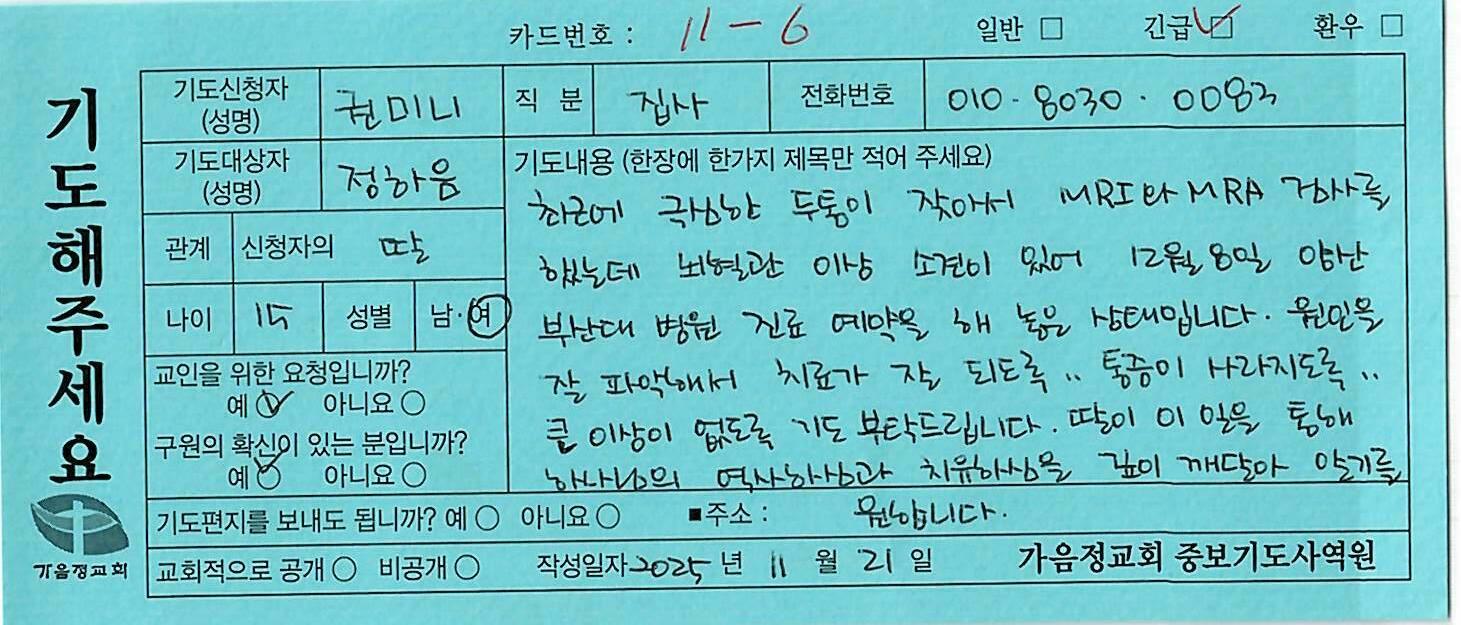 카드번호 : 11-6 일반 □ 긴급 ☑ 환우 □
기도해주세요
가음정교회
기도신청자 (성명) 권미니 직 분 집사 전화번호 010-8030-0083
기도대상자 (성명) 정하음
관계 신청자의 딸
나이 15 성별 남·여
교인을 위한 요청입니까?
예 ○ 아니요 ○
구원의 확신이 있는 분입니까?
예 ○ 아니요 ○
기도내용 (한장에 한가지 제목만 적어 주세요)
최근에 극심한 두통이 잦아서 MRI와 MRA 검사를
했는데 뇌혈관 이상 소견이 있어 12월 8일 양산
부산대 병원 진료 예약을 해 놓은 상태입니다. 원인을
잘 파악해서 치료가 잘 되도록.. 통증이 사라지도록..
큰 이상이 없도록 기도 부탁드립니다. 딸이 이 일을 통해
하나님의 역사하심과 치유하심을 깊이 깨달아 알기를
원합니다.
기도편지를 보내도 됩니까? 예 ○ 아니요 ○ ■주소 :
교회적으로 공개 ○ 비공개 ○ 작성일자 2025 년 11 월 21 일 가음정교회 중보기도사역원